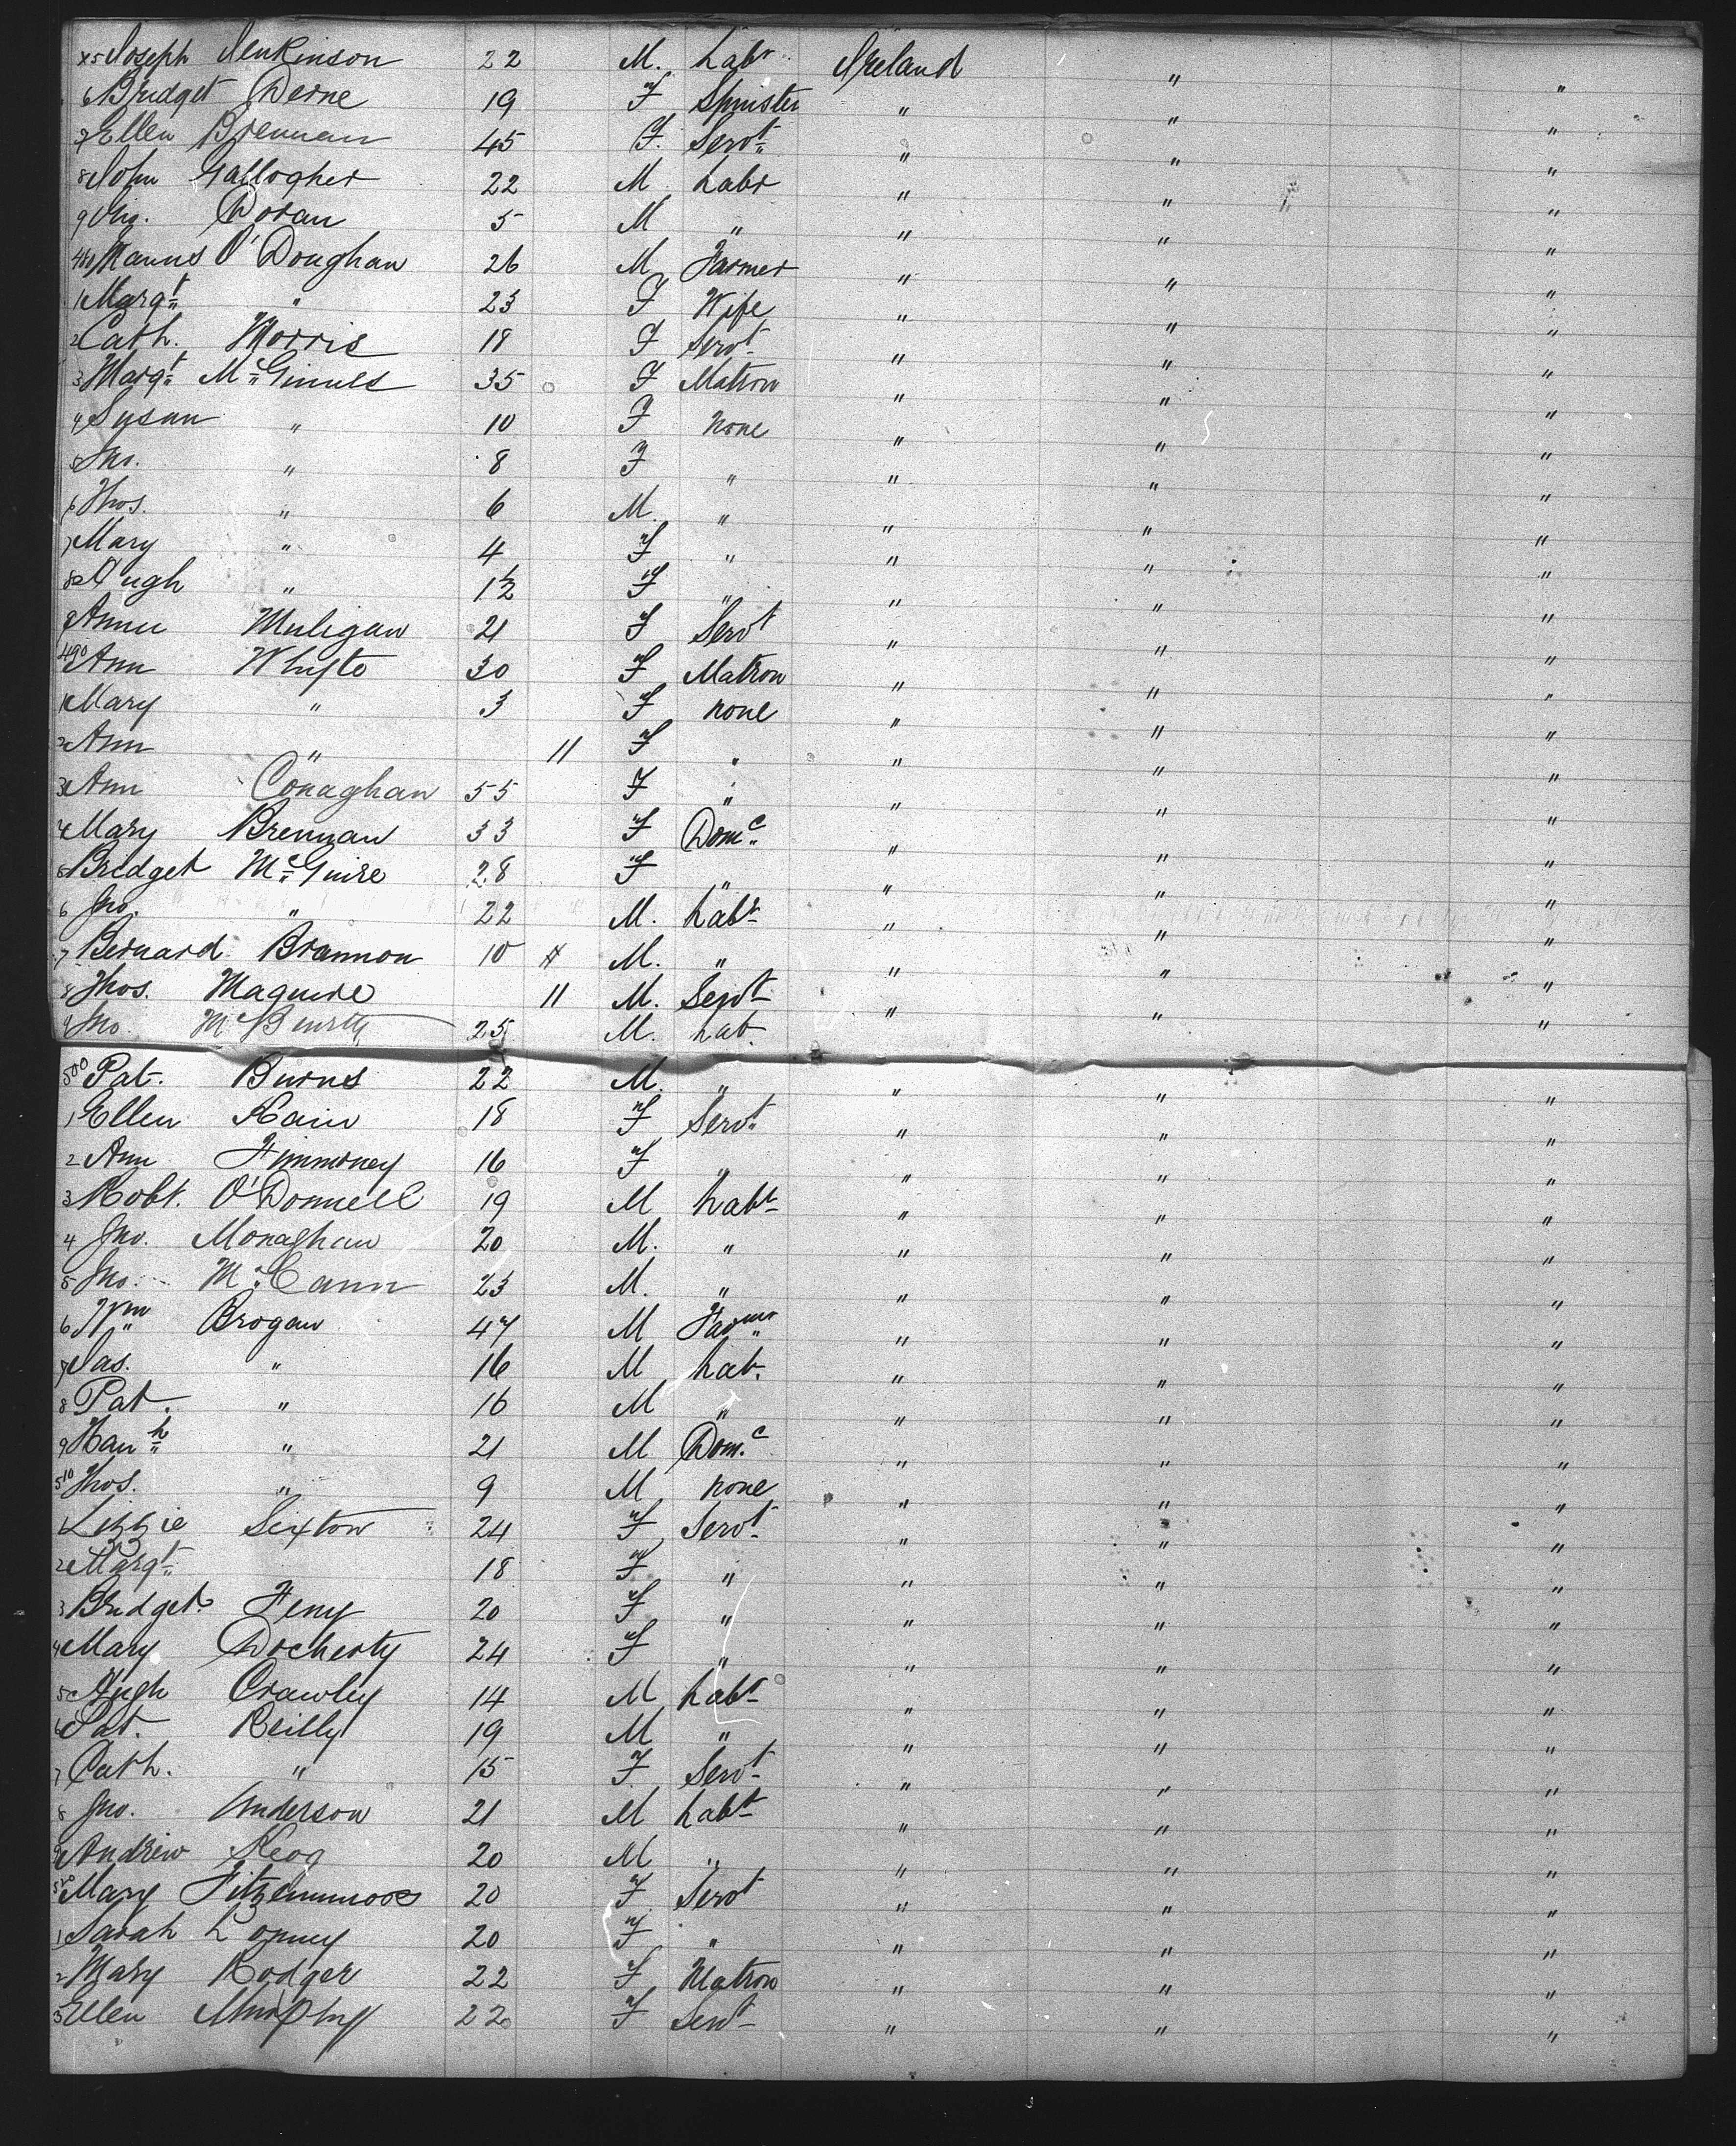 x5 Joseph Jenkinson 22 M. Labr. Ireland " "
6 Bridget Derne 19 F Spinster " " "
7 Ellen Brennan 45 F. Servt " " "
8 John Gallogher 22 M Labr " " "
9 Jno. Doran 5 M " " " "
480 Manus O'Doughan 26 M Farmer " " "
1 Margt " 23 F Wife " " "
2 Cath. Morris 18 F Servt " " "
3 Margt McGinnes 35 F Matron " " "
4 Susan " 10 F none " " "
5 Jno. " 8 F " " " "
6 Thos. " 6 M. " " " "
7 Mary " 4 F " " " "
8 Hugh " 1½ F " " " "
9 Annie Muligan 21 F Servt " " "
490 Ann Whyte 30 F Matron " " "
1 Mary " 3 F none " " "
2 Ann " 11 F " " " "
3 Ann Conaghan 55 F " " " "
4 Mary Brennan 33 F Domc " " "
5 Bridget McGuire 28 F " " " "
6 Jno. " 22 M. Labr " " "
7 Bernard Brannon 10 M. " " " "
8 Thos. Maguire 11 M. Servt " " "
9 Jno. 25 M. Lab. " "
500 Pat. Burns 22 M. " " " "
1 Ellen Kain 18 F Servt " " "
2 Ann Timmoney 16 F " " " "
3 Robt. O'Donnell 19 M Labr " " "
4 Jno. Monaghan 20 M. " " " "
5 Jno. McCann 23 M. " " " "
6 Wm Brogan 47 M Farmr " " "
7 Jas. " 16 M Lab. " " "
8 Pat. " 16 M " " " "
9 Hanh " 21 M Domc " " "
510 Thos. " 9 M none " " "
1 Lizzie Sexton 24 F Servt " " "
2 Margt 18 F " " " "
3 Bridget Feny 20 F " " " "
4 Mary Docherty 24 F " " " "
5 Hugh Crawley 14 M Labr " " "
6 Pat. Reilly 19 M " " " "
7 Cath. " 15 F Servt " " "
8 Jno. Anderson 21 M Labr " " "
9 Andrew Keog 20 M " " " "
520 Mary Fitzsimmons 20 F Servt " " "
1 Sarah Lonney 20 F " " " "
2 Mary Rodger 22 F Matron " " "
3 Ellen Murphy 22 F Servt " " "